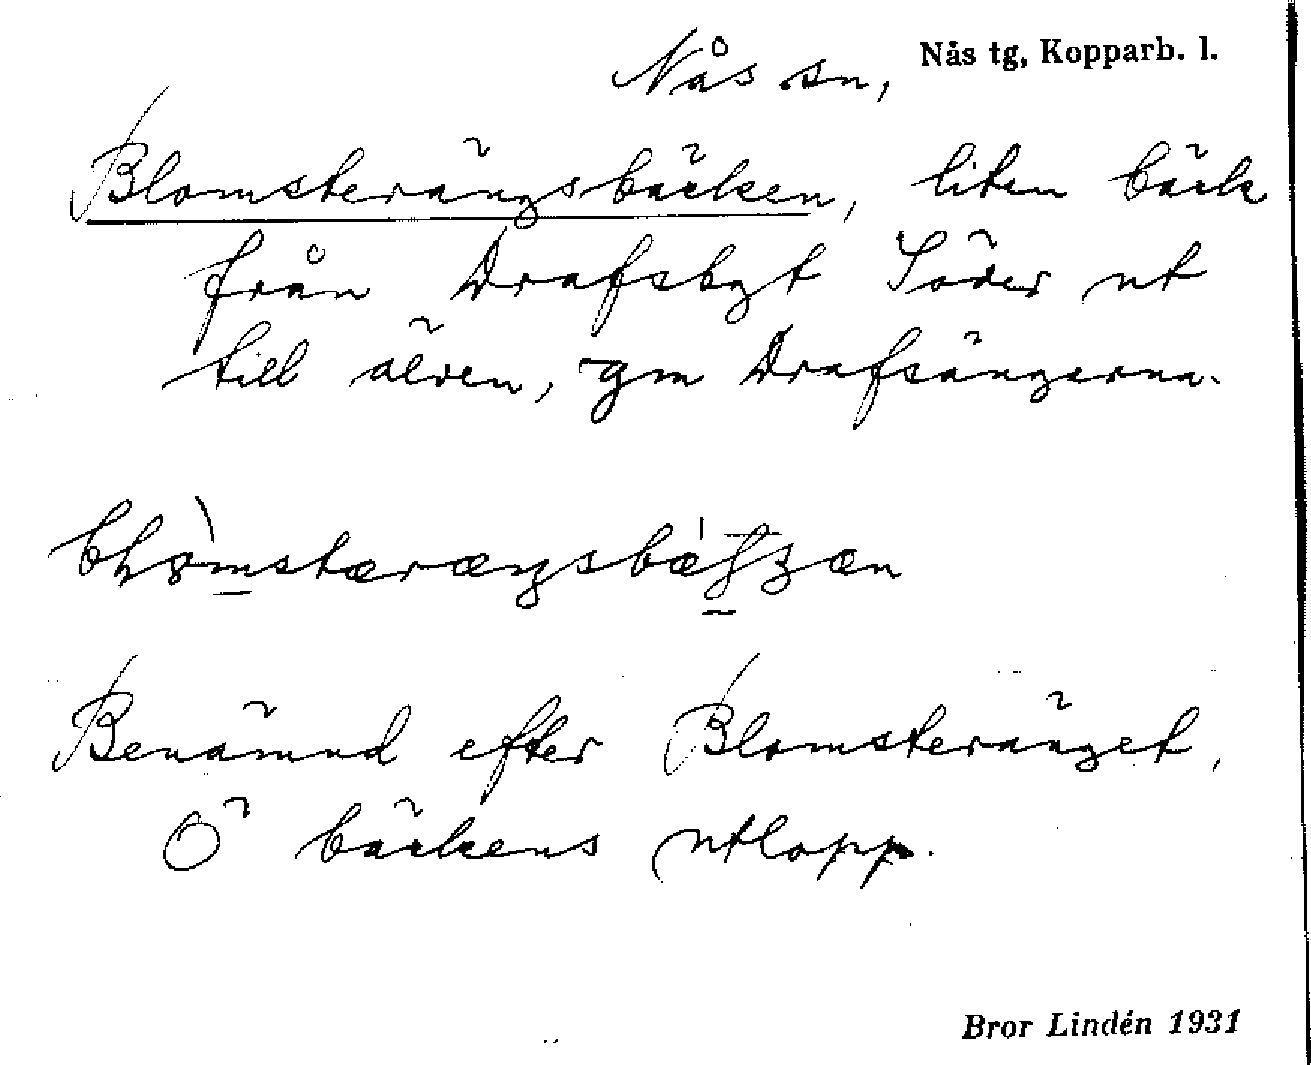 Nås sn, Nås tg, Kopparb. l.
Blomsterängsbäcken, liten bäck
från Drafsbyt Söder ut
till älven, gm Drafsängerna.
Benämnd efter Blomsteränget,
Ö bäckens utlopp.
Bror Lindén 1931